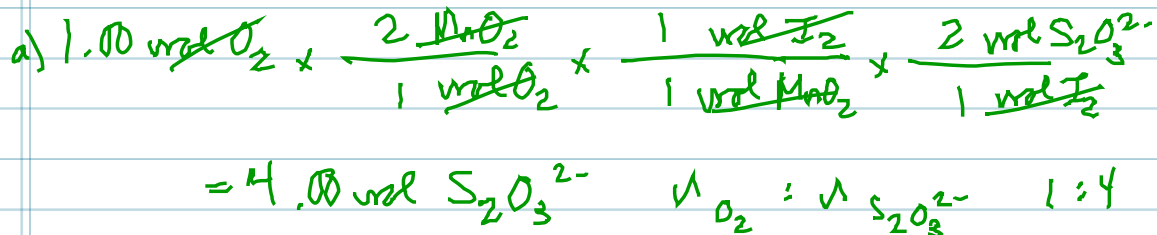 a) 1.00 mol O₂ × 2 MnO₂ / 1 mol O₂ × 1 mol I₂ / 1 mol MnO₂ × 2 mol S₂O₃²⁻ / 1 mol I₂
= 4.00 mol S₂O₃²⁻ n O₂ : n S₂O₃²⁻ 1 : 4